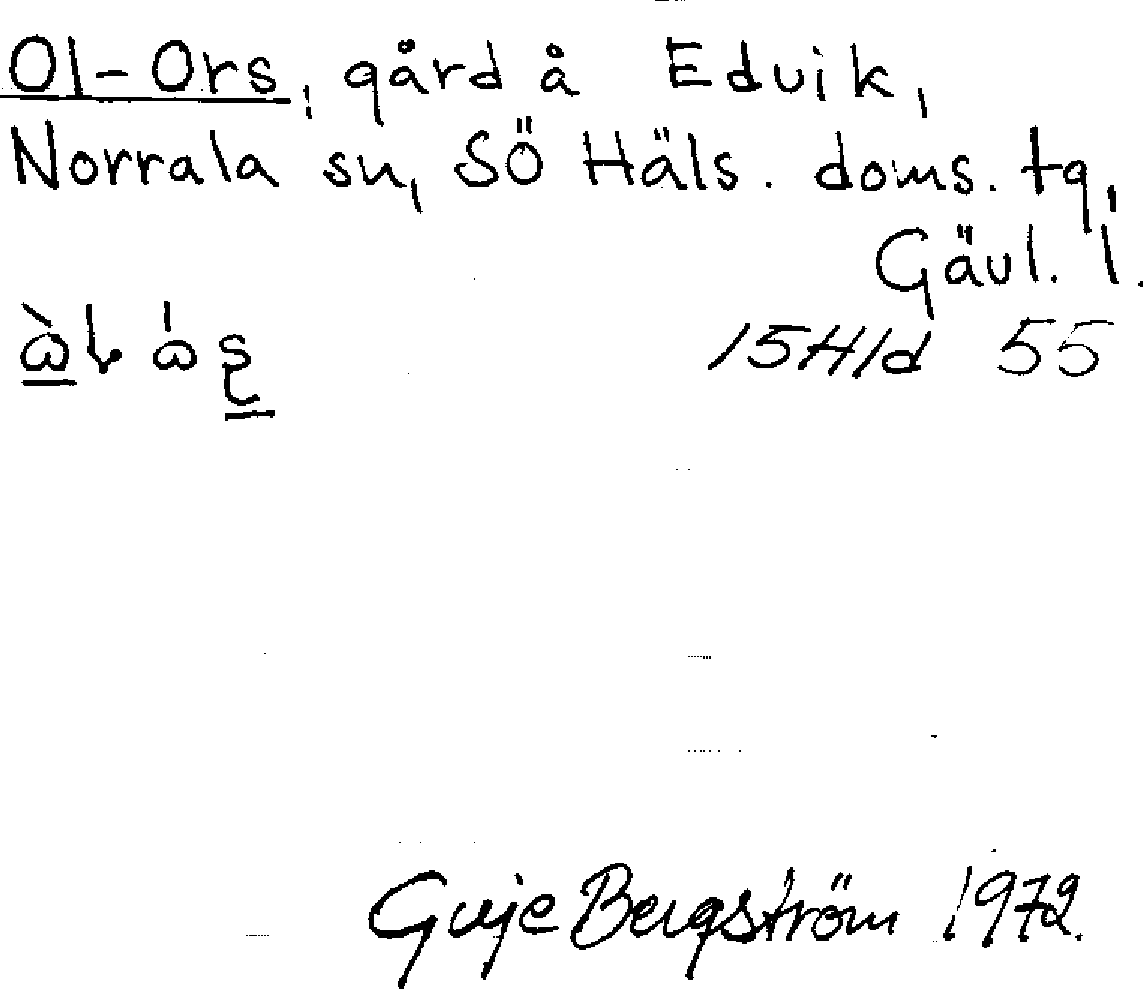 Ol-Ors, gård å Edvik,
Norrala sn, SÖ Häls. doms. tg,
Gävl. l.
15H1d 55
Guje Bergström 1972.